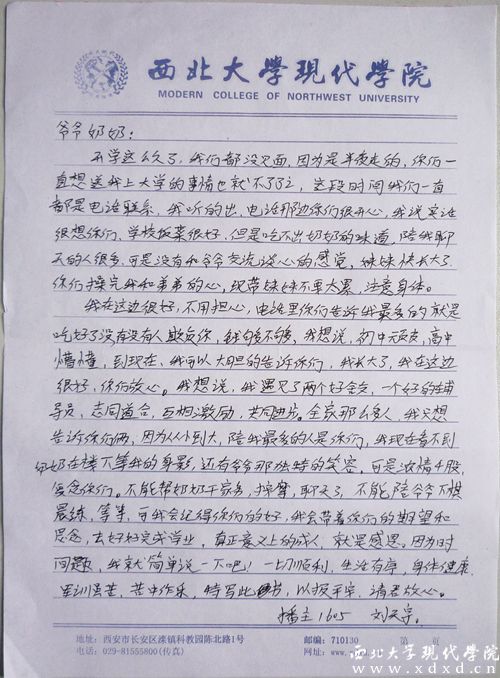 西北大學現代學院
MODERN COLLEGE OF NORTHWEST UNIVERSITY
爷爷奶奶:
开学这么久了,我们都没见面,因为是半夜走的,你们一
直想送我上大学的事情也就不了了之,这段时间我们一直
都是电话联系,我听的出,电话那边你们很开心,我说实话
很想你们,学校饭菜很好,但是吃不出奶奶的味道,陪我聊
天的人很多,可是没有和爷爷交流谈心的感觉,妹妹快长大了,
你们操完我和弟弟的心,现带妹妹不要太累,注意身体。
我在这边很好,不用担心,电话里你们告诉我最多的就是
吃好了没有没有人欺负你,钱够不够,我想说,初中顽皮,高中
懵懂,到现在,我可以大胆的告诉你们,我长大了,我在这边
很好,你们放心。我想说,我遇见了两个好舍友,一个好的辅
导员,志同道合,互相激励,共同进步。全家那么多人,我只想
告诉你们俩,因为从小到大,陪我最多的人是你们,我现在看不到
奶奶在楼下等我的身影,还有爷爷那独特的笑容,可是浓情4股,
爱念你们。不能帮奶奶干家务,按摩,聊天了,不能陪爷爷下棋
晨练,等等,可我会记得你们的好,我会带着你们的期望和
思念,去好好完成学业,真正意义上的成人,就是感恩。因为时
间问题,我就简单说一下吧!一切顺利,生活有序,身体健康,
军训虽苦,苦中作乐,特写此书,以报平安,请君放心。
播主1605 刘天宇
地址:西安市长安区滦镇科教园陈北路1号
邮编:710130
第 页
电话:029-81555800(传真)
网址:www.
西北大学现代学院
www.xdxd.cn